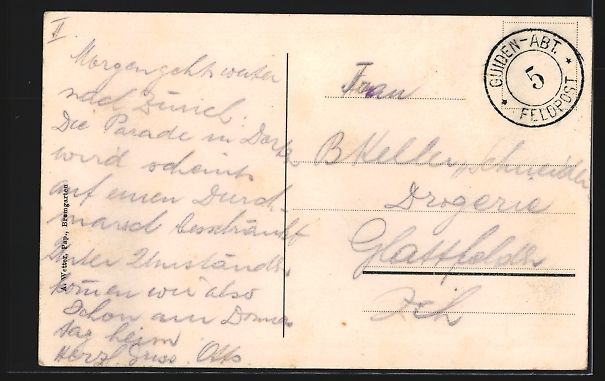 II
Morgen geht's weiter
nach Zürich.
Die Parade in
wird scheints
auf einen Durch-
marsch beschränkt
Unter Umständen
können wir also
schon am Donners
tag heim
Herzl. Gruss. Otto
A. Wetter, Pap., Bremgarten
GUIDEN-ABT.
5
FELDPOST
Frau
B Keller Schneider
Drogerie
Glattfelden
Zch